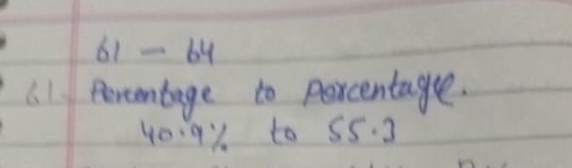 61 - 64
61 Percentage to percentage.
40.9% to 55.3